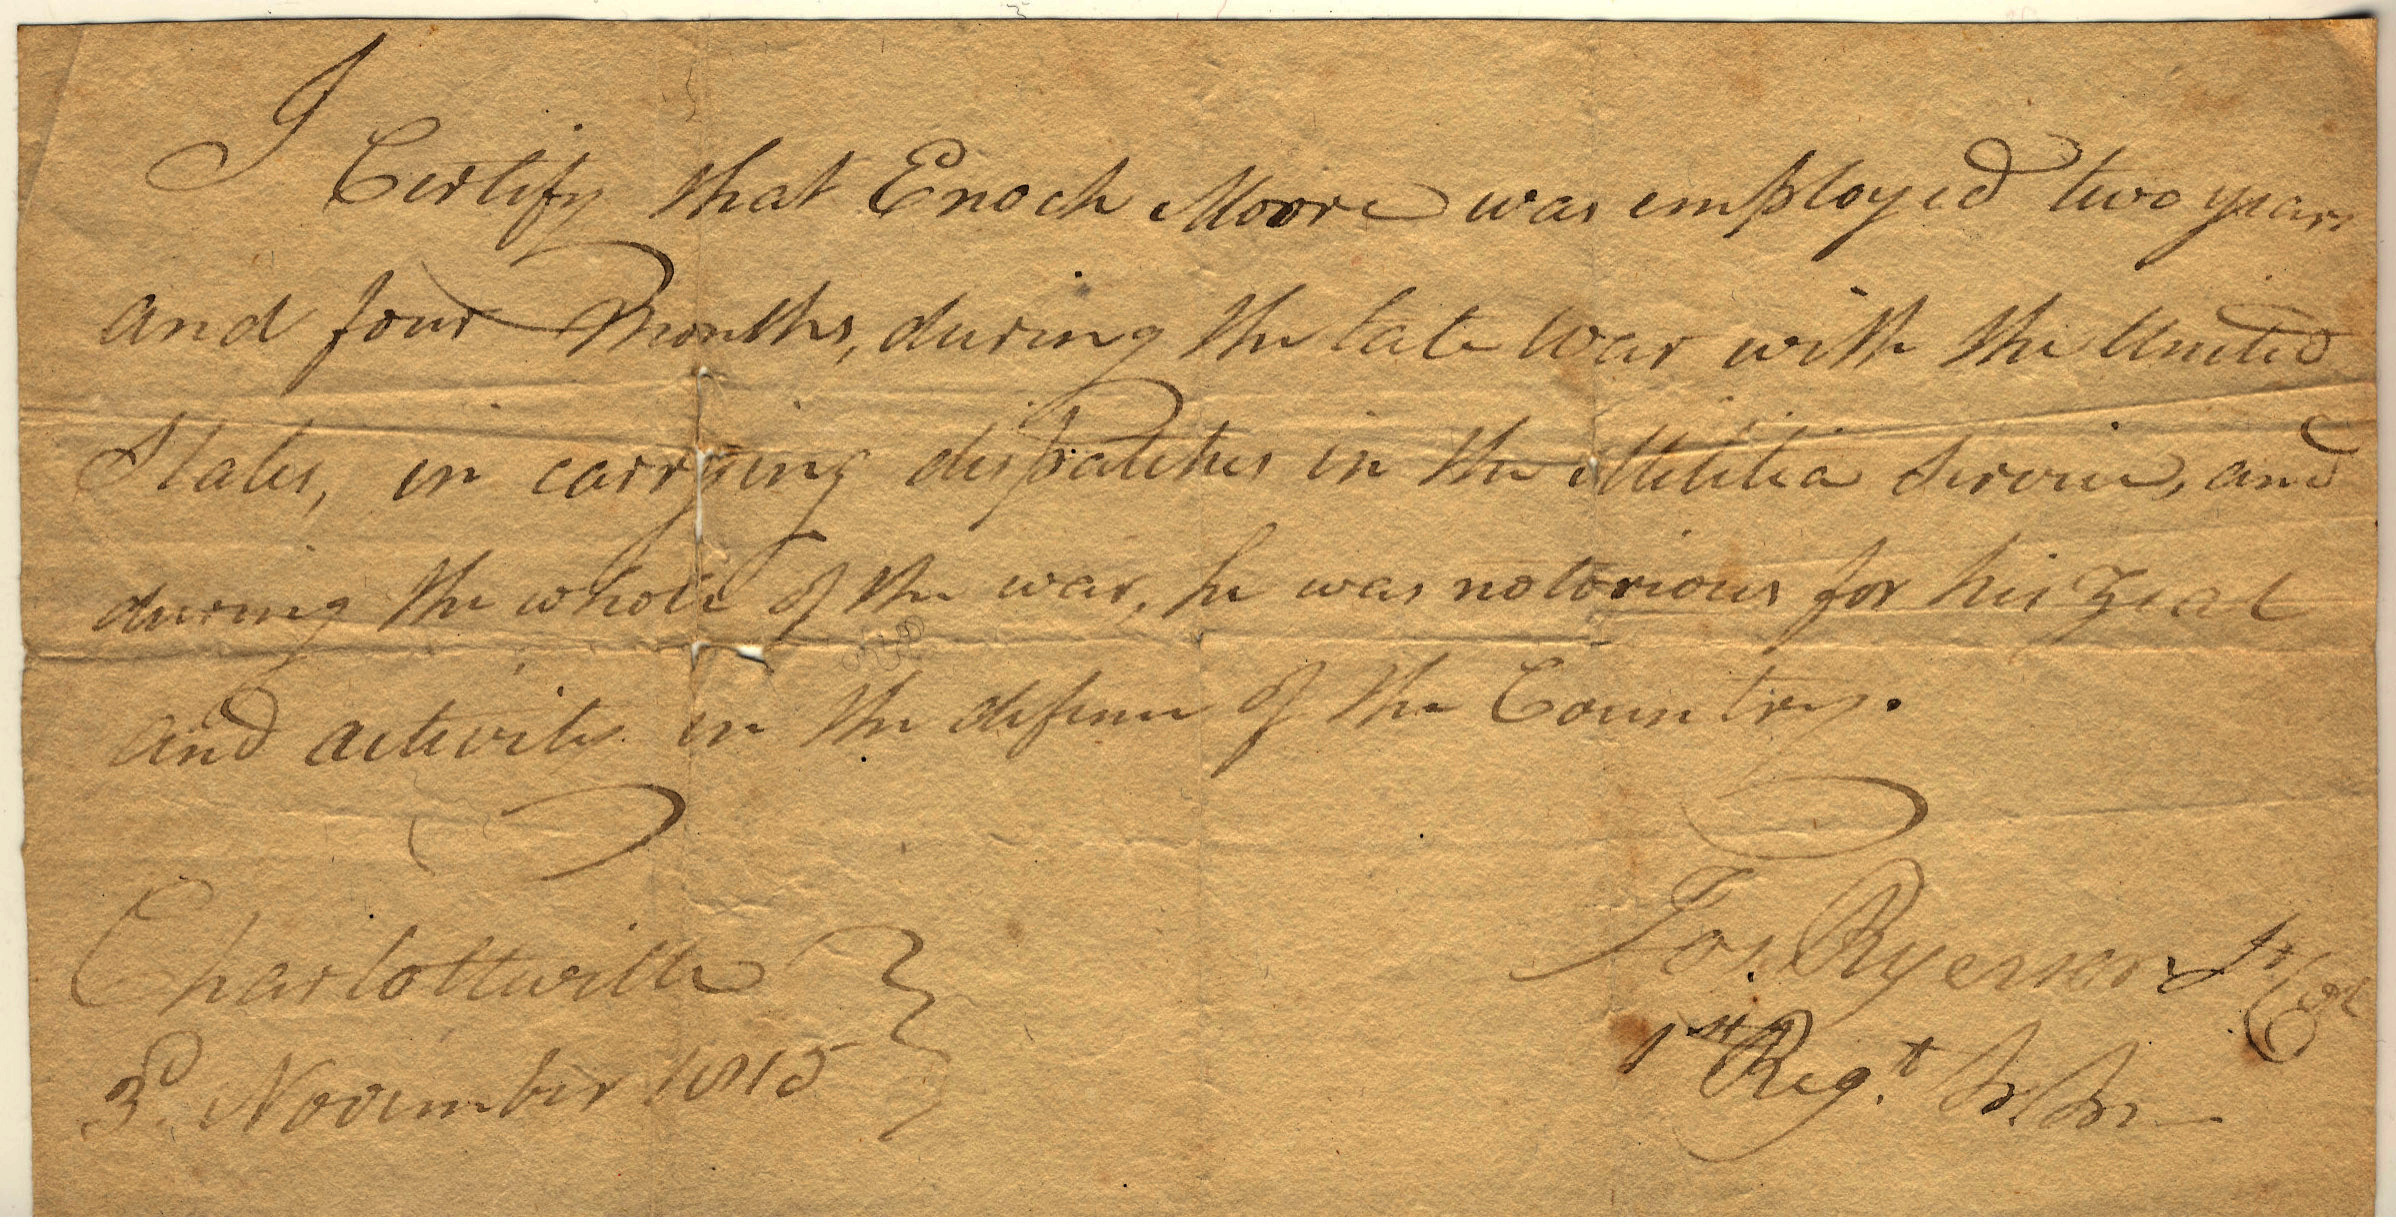 I Certify that Enoch Moore was employed two years
and four Months, during the late War with the United
States, in carrying dispatches in the Militia Service, and
during the whole of the war, he was notorious for his Zeal
and activity in the defence of the Country.
Charlotteville
3d. November 1815
Jos. Ryerson Lt Col
1st Regt.